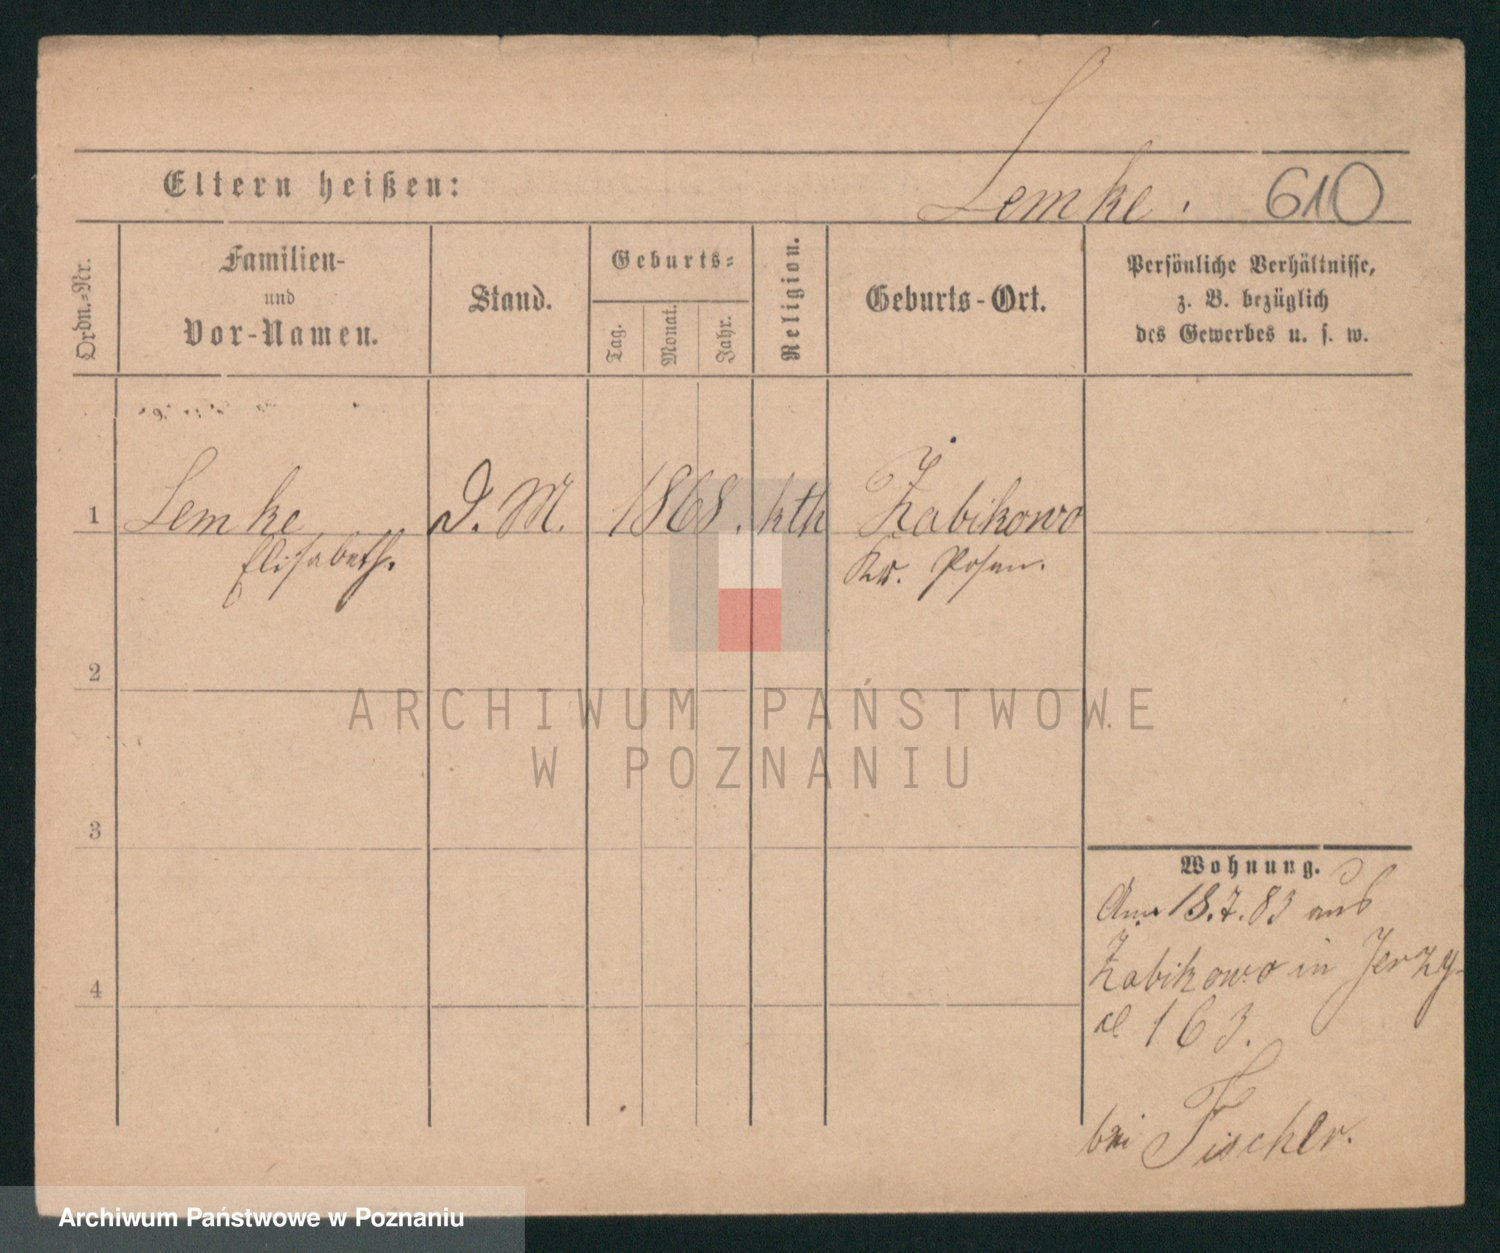 Eltern heißen:
Lemke. 610
Ordn.-Nr.
Familien-
und
Vor-Namen.
Stand.
Geburts-
Tag.
Monat.
Jahr.
Religion.
Geburts-Ort.
Persönliche Verhältnisse,
z. B. bezüglich
des Gewerbes u. s. w.
1 Lemke D. M. 1868. kth Żabikowo
Elisabeth. Kr. Posen.
2
ARCHIWUM PAŃSTWOWE
W POZNANIU
3
Wohnung.
Am 18.7.83 aus
Żabikowo in Jerzy-
4
163.
bei Fischer.
Archiwum Państwowe w Poznaniu